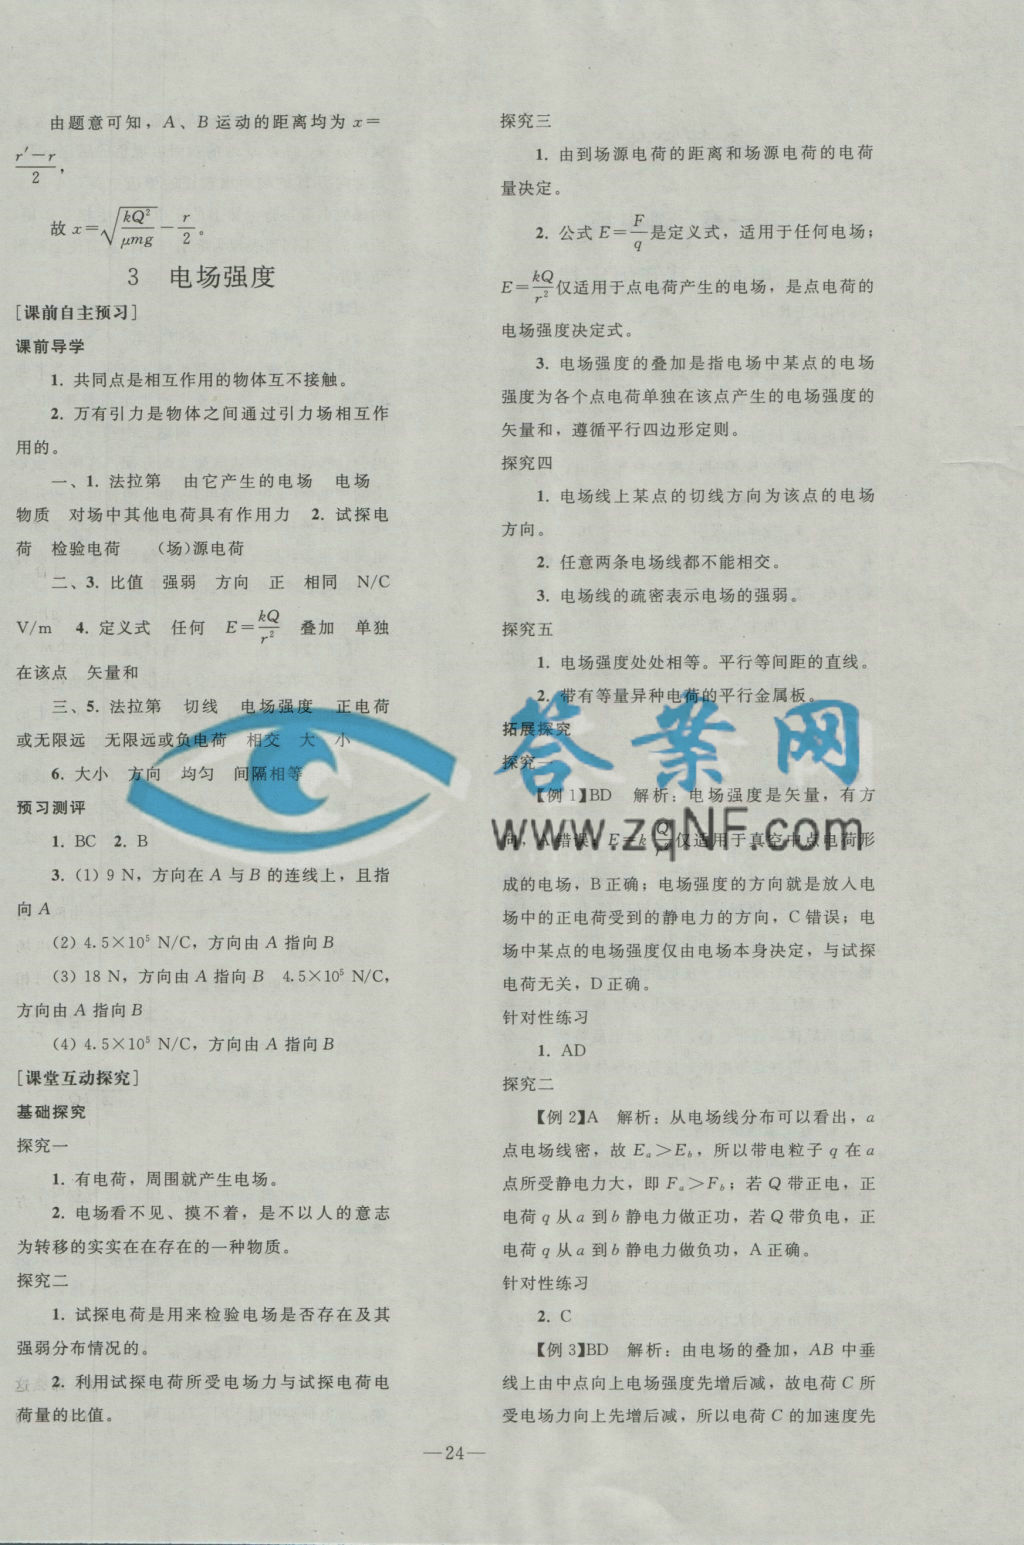 由题意可知，A、B 运动的距离均为 x＝
(r′－r)/2，
故 x＝√(kQ²/μmg)－r/2。
3 电场强度
[课前自主预习]
课前导学
1. 共同点是相互作用的物体互不接触。
2. 万有引力是物体之间通过引力场相互作
用的。
一、1. 法拉第 由它产生的电场 电场
物质 对场中其他电荷具有作用力 2. 试探电
荷 检验电荷 （场）源电荷
二、3. 比值 强弱 方向 正 相同 N/C
V/m 4. 定义式 任何 E＝kQ/r² 叠加 单独
在该点 矢量和
三、5. 法拉第 切线 电场强度 正电荷
或无限远 无限远或负电荷 相交 大 小
6. 大小 方向 均匀 间隔相等
预习测评
1. BC 2. B
3. (1) 9 N，方向在 A 与 B 的连线上，且指
向 A
(2) 4.5×10⁵ N/C，方向由 A 指向 B
(3) 18 N，方向由 A 指向 B 4.5×10⁵ N/C，
方向由 A 指向 B
(4) 4.5×10⁵ N/C，方向由 A 指向 B
[课堂互动探究]
基础探究
探究一
1. 有电荷，周围就产生电场。
2. 电场看不见、摸不着，是不以人的意志
为转移的实实在在存在的一种物质。
探究二
1. 试探电荷是用来检验电场是否存在及其
强弱分布情况的。
2. 利用试探电荷所受电场力与试探电荷电
荷量的比值。
探究三
1. 由到场源电荷的距离和场源电荷的电荷
量决定。
2. 公式 E＝F/q 是定义式，适用于任何电场；
E＝kQ/r² 仅适用于点电荷产生的电场，是点电荷的
电场强度决定式。
3. 电场强度的叠加是指电场中某点的电场
强度为各个点电荷单独在该点产生的电场强度的
矢量和，遵循平行四边形定则。
探究四
1. 电场线上某点的切线方向为该点的电场
方向。
2. 任意两条电场线都不能相交。
3. 电场线的疏密表示电场的强弱。
探究五
1. 电场强度处处相等。平行等间距的直线。
2. 带有等量异种电荷的平行金属板。
拓展探究
探究一
【例 1】BD 解析：电场强度是矢量，有方
向，A 错误；E＝kQ/r² 仅适用于真空中点电荷形
成的电场，B 正确；电场强度的方向就是放入电
场中的正电荷受到的静电力的方向，C 错误；电
场中某点的电场强度仅由电场本身决定，与试探
电荷无关，D 正确。
针对性练习
1. AD
探究二
【例 2】A 解析：从电场线分布可以看出，a
点电场线密，故 Eₐ＞E_b，所以带电粒子 q 在 a
点所受静电力大，即 Fₐ＞F_b；若 Q 带正电，正
电荷 q 从 a 到 b 静电力做正功，若 Q 带负电，正
电荷 q 从 a 到 b 静电力做负功，A 正确。
针对性练习
2. C
【例 3】BD 解析：由电场的叠加，AB 中垂
线上由中点向上电场强度先增后减，故电荷 C 所
受电场力向上先增后减，所以电荷 C 的加速度先
—24—
答案网
www.zqNF.com